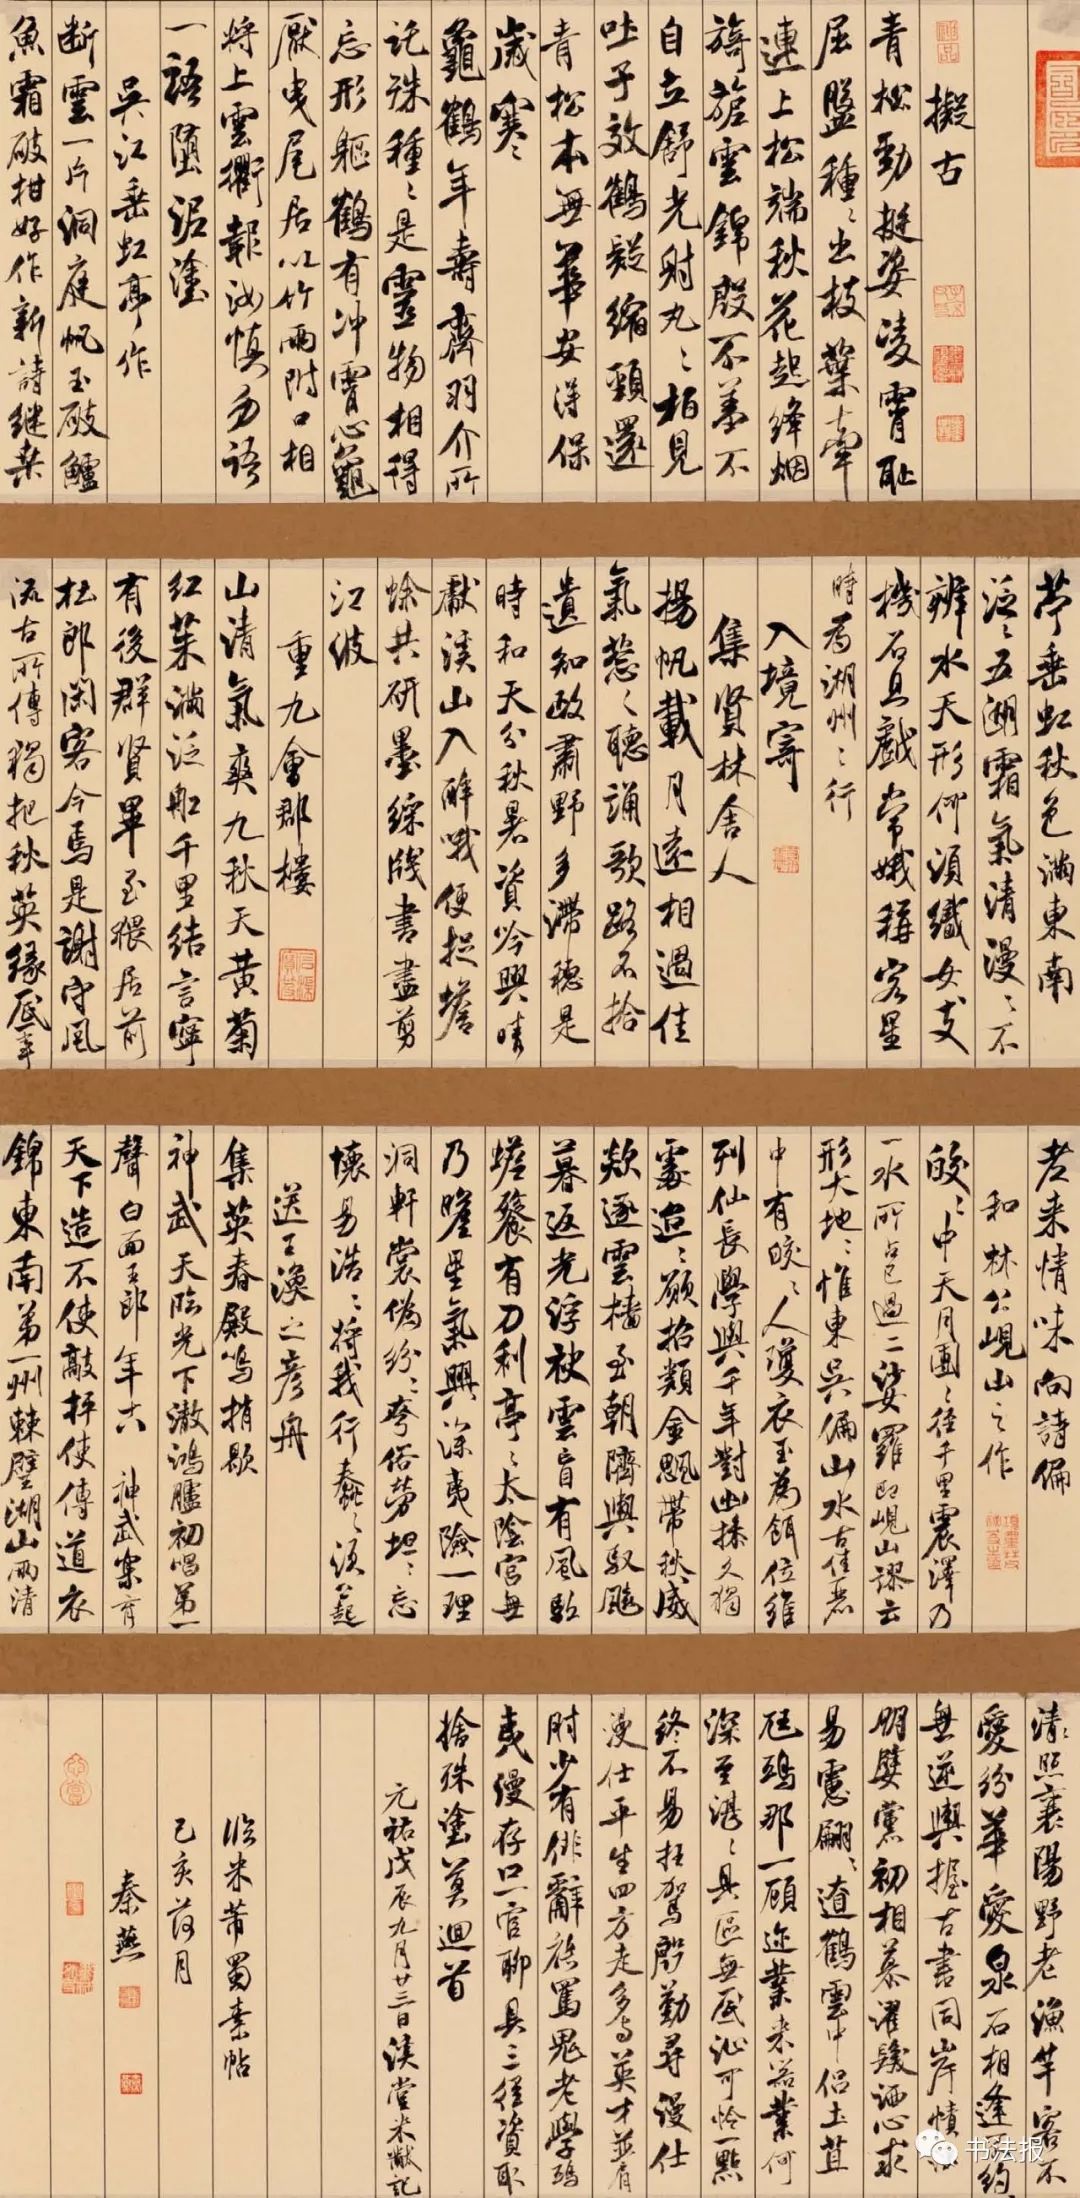 擬古
青松勁挺姿凌霄恥
屈盤種〻出枝葉牽
連上松端秋花起絳烟
旖旎雲錦殷不羞不
自立舒光射丸〻柏見
吐子效鶴疑縮頸還
青松本無華安得保
歲寒
龜鶴年壽齊羽介所
託殊種〻是靈物相得
忘形軀鶴有沖霄心龜
厭曳尾居以竹兩附口相
將上雲衢報汝慎勿語
一語墮泥塗
吳江垂虹亭作
斷雲一片洞庭帆玉破鱸
魚霜破柑好作新詩繼桑
苧垂虹秋色滿東南
泛〻五湖霜氣清漫〻不
辨水天形何須織女支
機石且戲常娥稱客星
時為湖州之行
入境寄
集賢林舍人
揚帆載月遠相過佳
氣蔥〻聽誦歌路不拾
遺知政肅野多滯穗是
時和天分秋暑資吟興晴
獻溪山入醉哦便捉蟾
蜍共研墨綵牋書盡剪
江波
重九會郡樓
山清氣爽九秋天黃菊
紅茱滿泛船千里結言寧
有後群賢畢至猥居前
杜郎閑客今焉是謝守風
流古所傳獨把秋英緣底事
老來情味向詩偏
和林公峴山之作
皎〻中天月團〻徑千里震澤乃
一水所占已過二娑羅即峴山謬云
形大地〻惟東吳偏山水古佳麗
中有皎〻人瓊衣玉為餌位維
列仙長學與千年對幽操久獨
處迢〻願招類金颸帶秋威
欻逐雲檣至朝隮輿馭飈
暮返光浮袂雲盲有風馭
蟾餮有刀利亭〻太陰宮無
乃瞻星氣興深夷險一理
洞軒裳偽紛〻夸俗勞坦〻忘
懷易浩〻將我行蠢〻須公起
送王渙之彥舟
集英春殿鳴捎歇
神武天臨光下澈鴻臚初唱第一
聲白面王郎年十八神武樂育
天下造不使敲枰使傳道衣
錦東南第一州棘璧湖山兩清
清照襄陽野老漁竿客不
愛紛華愛泉石相逢不約
無逆輿握古書同岸幘
明嬖黨初相慕濯髮洒心求
易慮翩〻遼鶴雲中侶土苴
尫鴟那一顧邇業來器業何
深至湛〻具區無底沚可怜一點
終不易枉駕殷勤尋漫仕
漫仕平生四方走多與英才並肩
肘少有俳辭能罵鬼老學鴟
夷漫存口一官聊具三徑資取
捨殊塗莫迴首
元祐戊辰九月廿三日溪堂米黻記
臨米芾蜀素帖
己亥荷月
秦燕
书法报